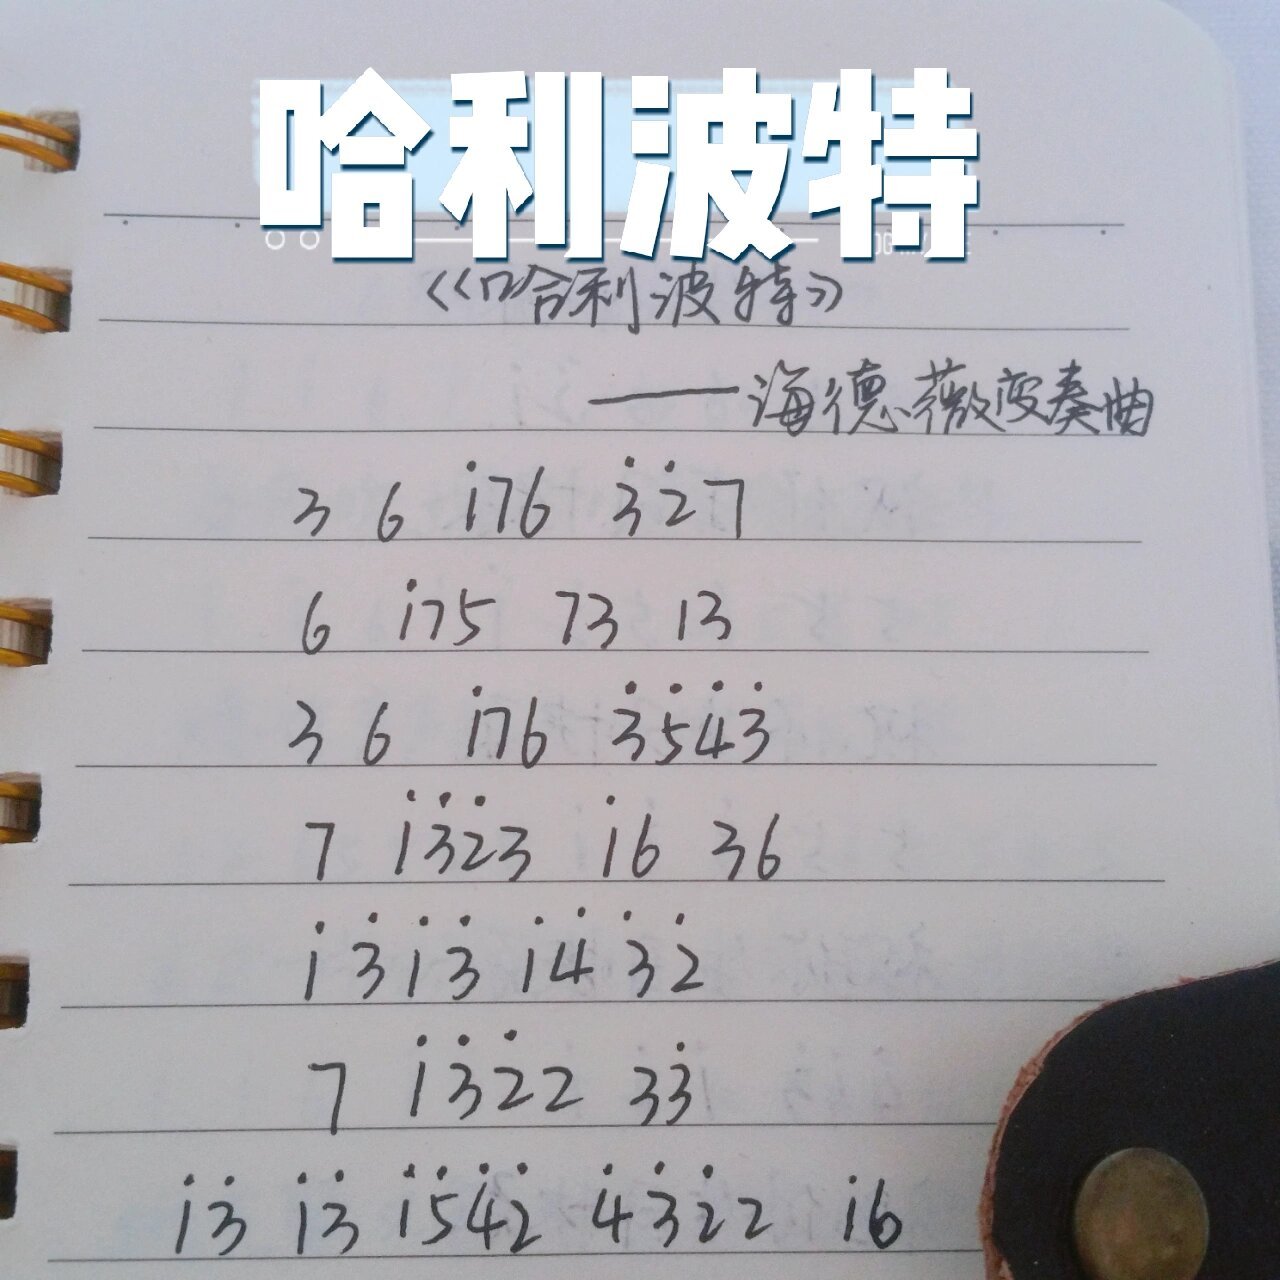 哈利波特
《哈利波特》
——海德薇变奏曲
3 6 i76 3̇2̇7
6 i75 73 13
3 6 i76 3̇5̇4̇3̇
7 1̇3̇2̇3 1̇6 36
1̇3̇1̇3̇ 1̇4̇3̇2̇
7 1̇3̇2̇2 33̇
1̇3̇ 1̇3̇ 1̇5̇4̇2̇ 4̇3̇2̇2 1̇6